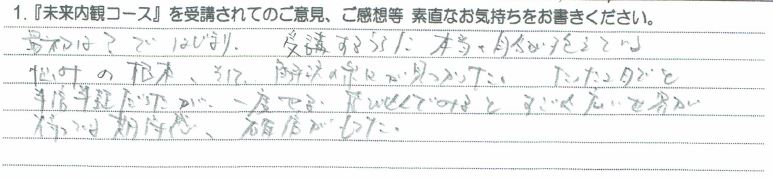 1.『未来内観コース』を受講されてのご意見、ご感想等 素直なお気持ちをお書きください。
最初は?ではじまり、受講するうちに本当の自分が抱えている
悩みの根本、そして、解決の糸口が見つかった。たった2日でと
半信半疑だったが、一度でも飛び込んでみるとすごく広い世界が
待っている期待感、確信がもてた。